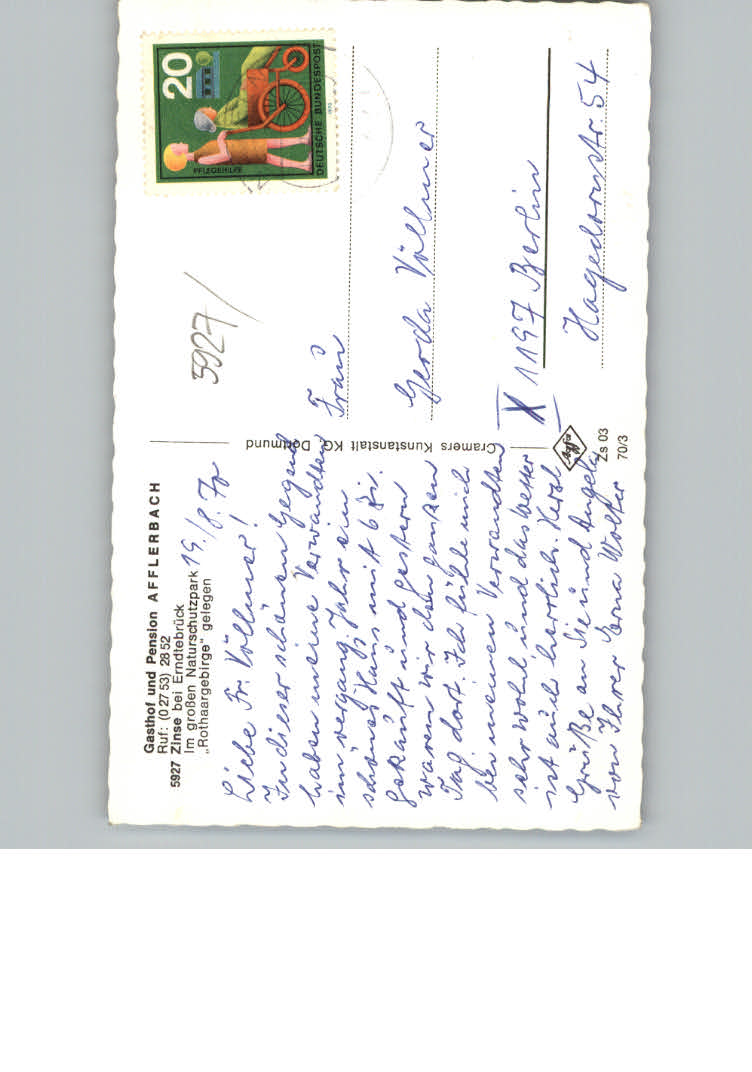 Gasthof und Pension AFFLERBACH
Ruf: (0 27 53) 28 52
5927 Zinse bei Erndtebrück
Im großen Naturschutzpark
„Rothaargebirge" gelegen
19./8.70
Liebe Fr. Völlmer!
In dieser schönen Gegend
haben meine Verwandten
im vergang. Jahr ein
schönes Haus mit 6 Zi.
gekauft und gestern
waren wir den ganzen
Tag dort. Ich fühle mich
bei meinen Verwandten
sehr wohl und das Wetter
ist auch herrlich. Herzl.
Grüße an Sie und Angela
von Ihrer Erna Wolter
Cramers Kunstanstalt KG Dortmund
Agfa
Zs 03
70/3
20
PFLEGEHILFE
DEUTSCHE BUNDESPOST
5927/
Frau
Gerda Völlmer
X 1197 Berlin
Hagedornstr. 54